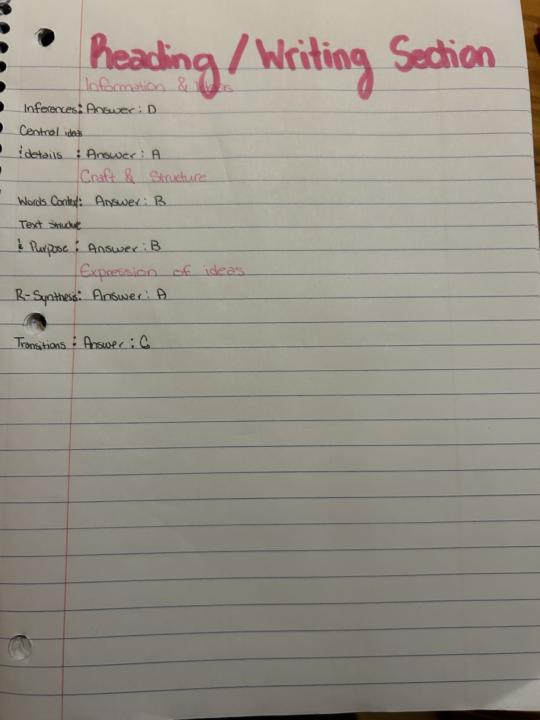 Reading / Writing Section
Information & Ideas
Inferences: Answer: D
Central ideas
& details : Answer: A
Craft & Structure
Words Context: Answer: B
Text Structure
& Purpose : Answer: B
Expression of ideas
R-Synthesis: Answer: A
Transitions : Answer : C